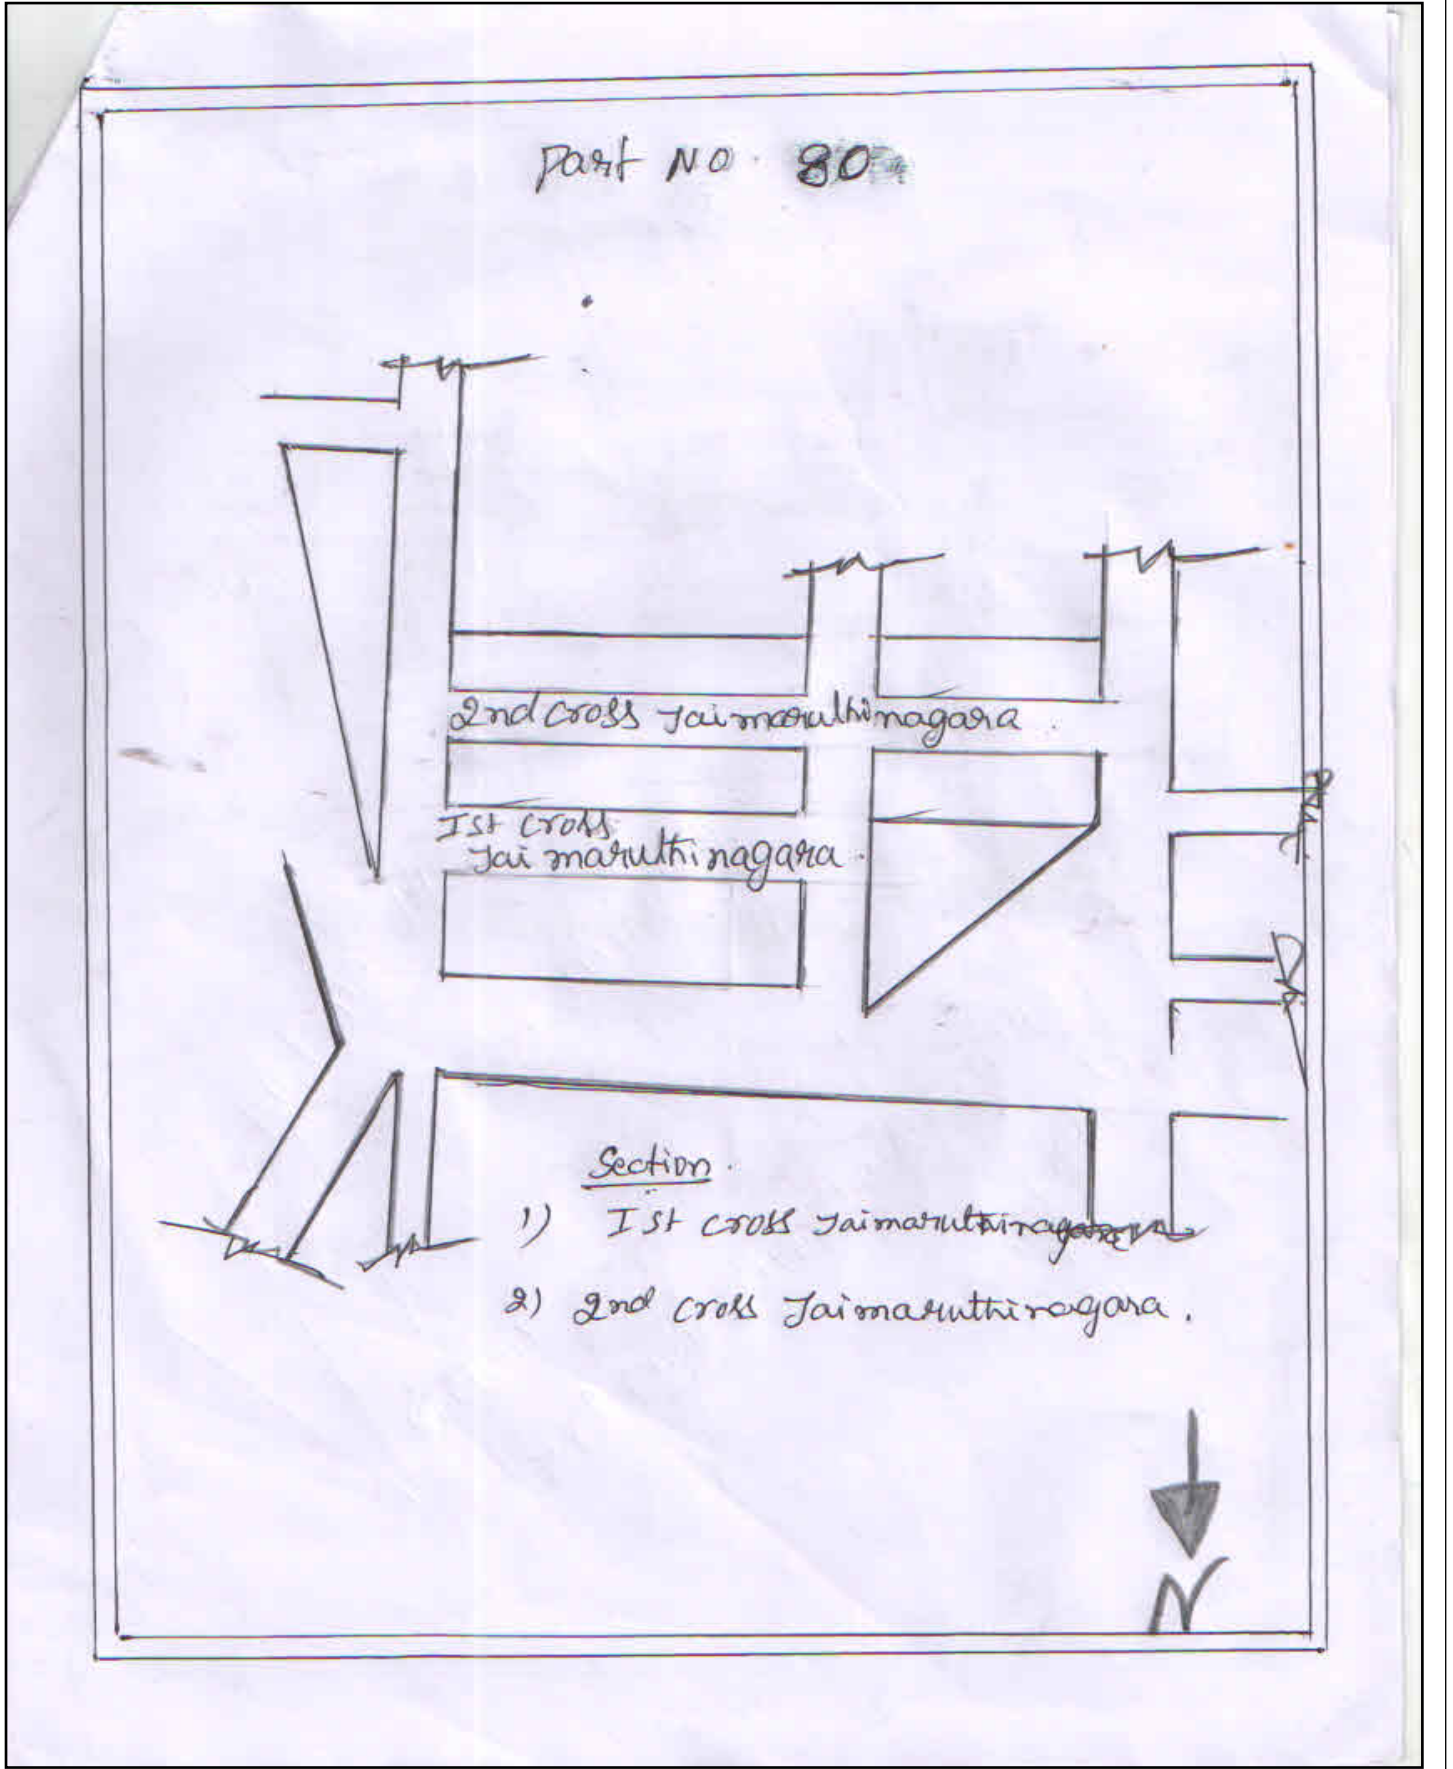 Part No. 80
2nd cross Jaimaruthinagara.
Ist cross
Jai maruthinagara.
Section.
1) Ist cross Jaimaruthinagara
2) 2nd cross Jaimaruthinagara.
N